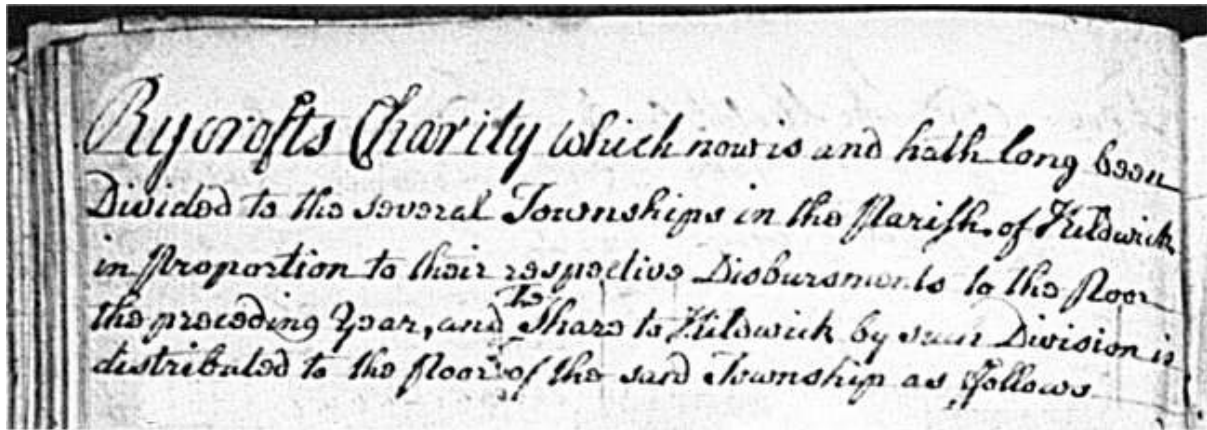 Rycrofts Charity which now is and hath long been
Divided to the several Townships in the Parish of Kildwick
in Proportion to their respective Disbursments to the Poor
the preceding Year, and The Share to Kildwick by such Division is
distributed to the Poor of the said Township as follows